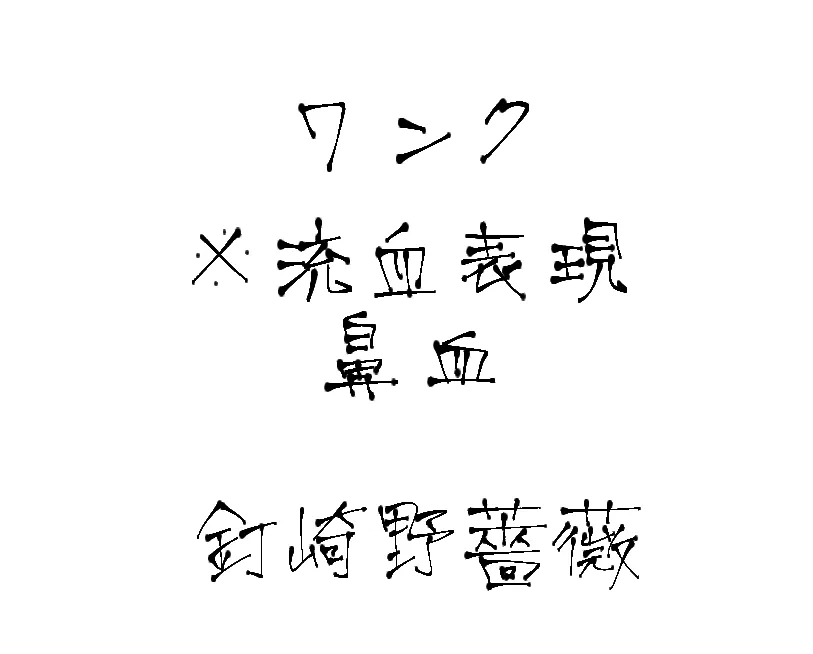 ワンク
※流血表現
鼻血
釘崎野薔薇